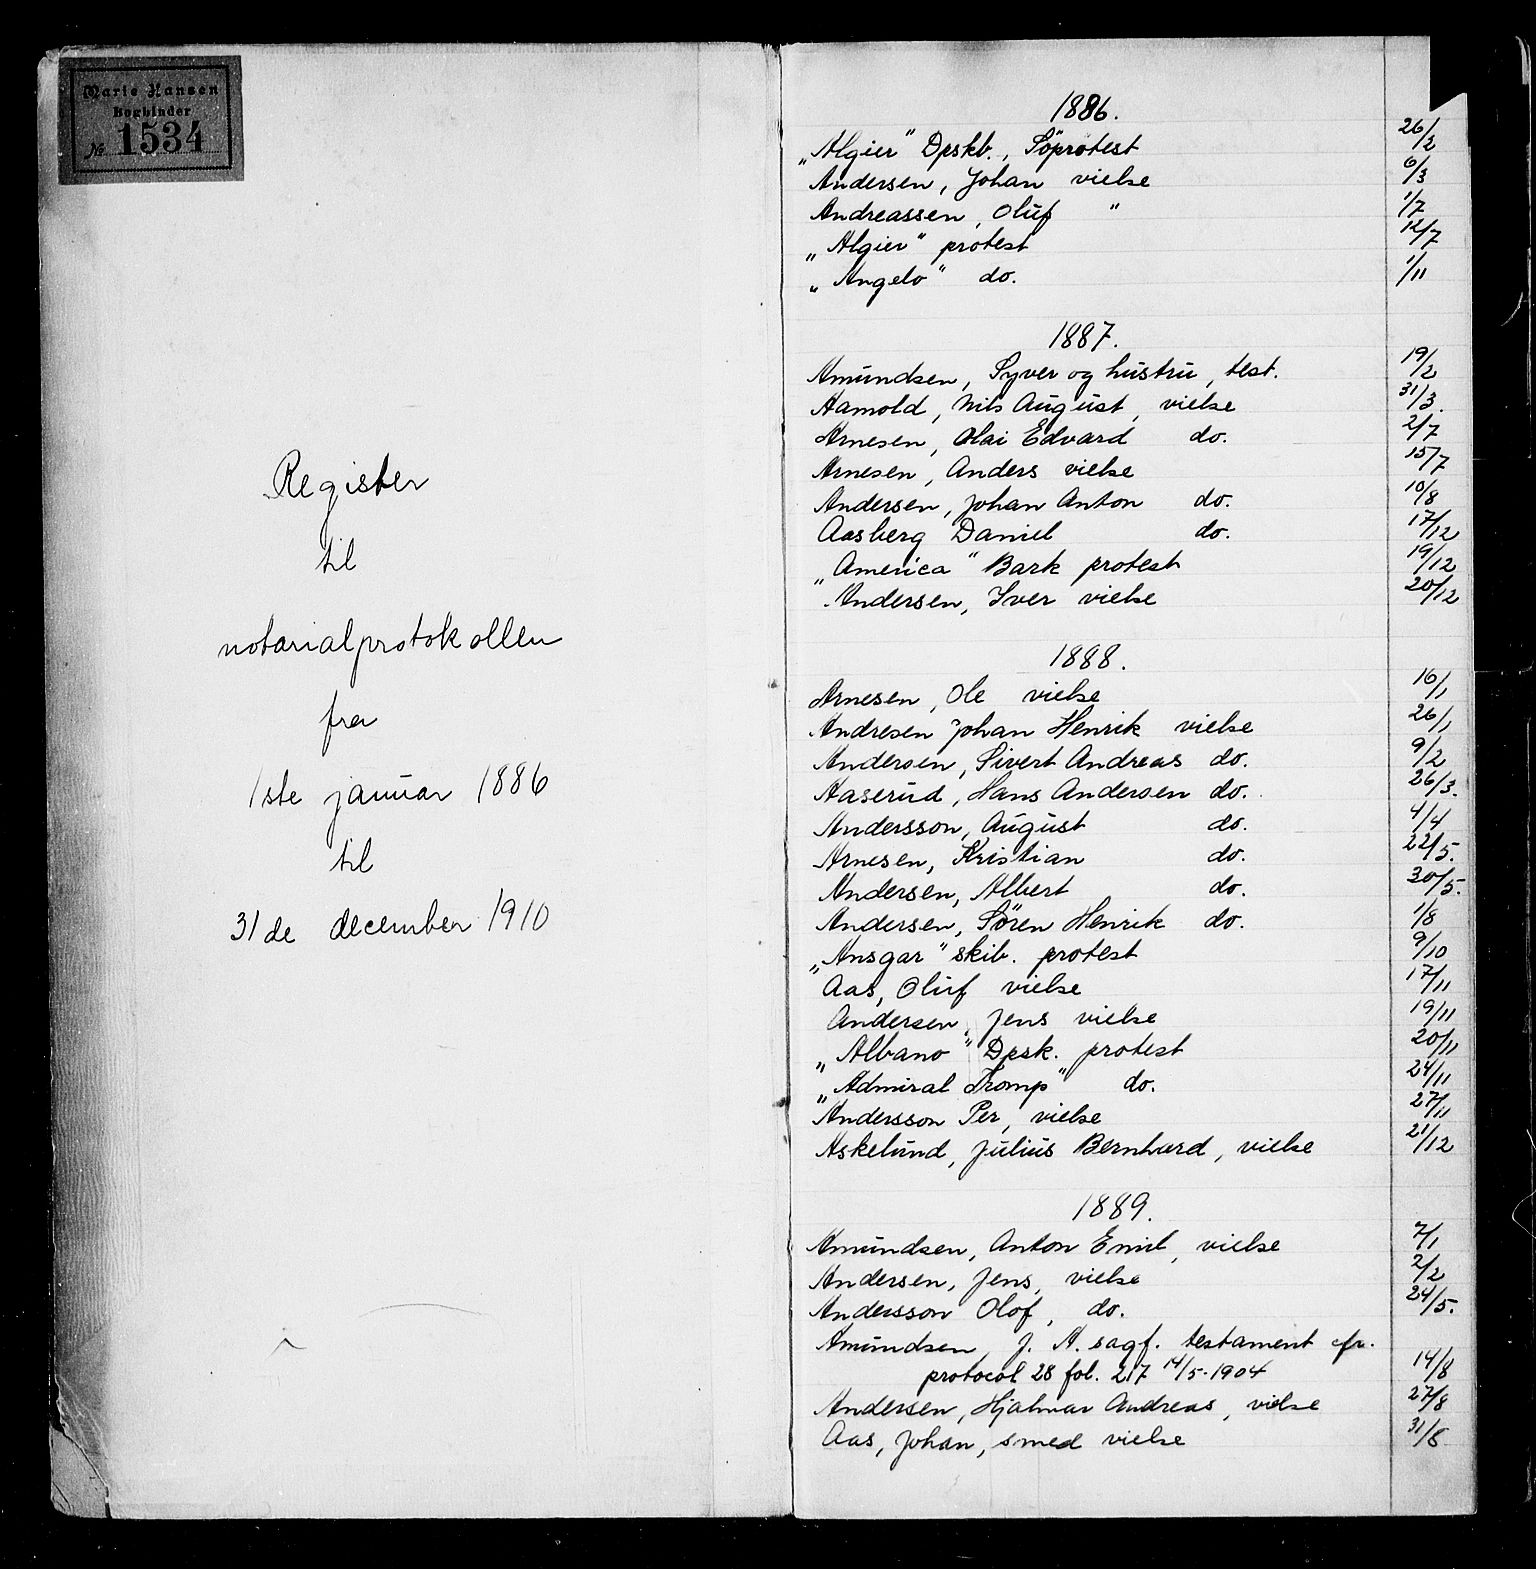 Marie Hansen
Bogbinder
№ 1534
Register
til
notarialprotokollen
fra
1ste januar 1886
til
31de december 1910
1886.
„Algier" Dpskb., Söprotest 26/2
Andersen, Johan vielse 6/3
Andreassen, Oluf " 1/7
„Algier" protest 12/7
„Angelo" do. 1/11
1887.
Amundsen, Syver og hustru, test. 19/2
Aamold, Nils August, vielse 31/3.
Arnesen, Olai Edvard do. 2/7
Arnesen, Anders vielse 15/7
Andersen, Johan Anton do. 10/8
Aasberg Daniel do. 17/12
„America" Bark protest 19/12
Andersen, Iver vielse 20/12
1888.
Arnesen, Ole vielse 16/1
Andresen Johan Henrik vielse 26/1
Andersen, Sivert Andreas do. 9/2
Aaserud, Hans Andersen do. 26/3.
Andersson, August do. 4/4
Arnesen, Kristian do. 22/5.
Andersen, Albert do. 30/5.
Andersen, Sören Henrik do. 1/8
„Ansgar" skib. protest 9/10
Aas, Oluf vielse 17/11
Andersen, Jens vielse 19/11
„Albano" Dpsk. protest 20/11
„Admiral Tromp" do. 24/11
Andersson Per, vielse 27/11
Askelund, Julius Bernhard, vielse 21/12
1889.
Amundsen, Anton Emil, vielse 7/1
Andersen, Jens, vielse 2/2
Andersson Olof, do. 24/5.
Amundsen, J. A. sagf. testament cfr.
protocol 28 fol. 217 14/5-1904 14/8
Andersen, Hjalmar Andreas, vielse 27/8
Aas, Johan, smed vielse 31/8